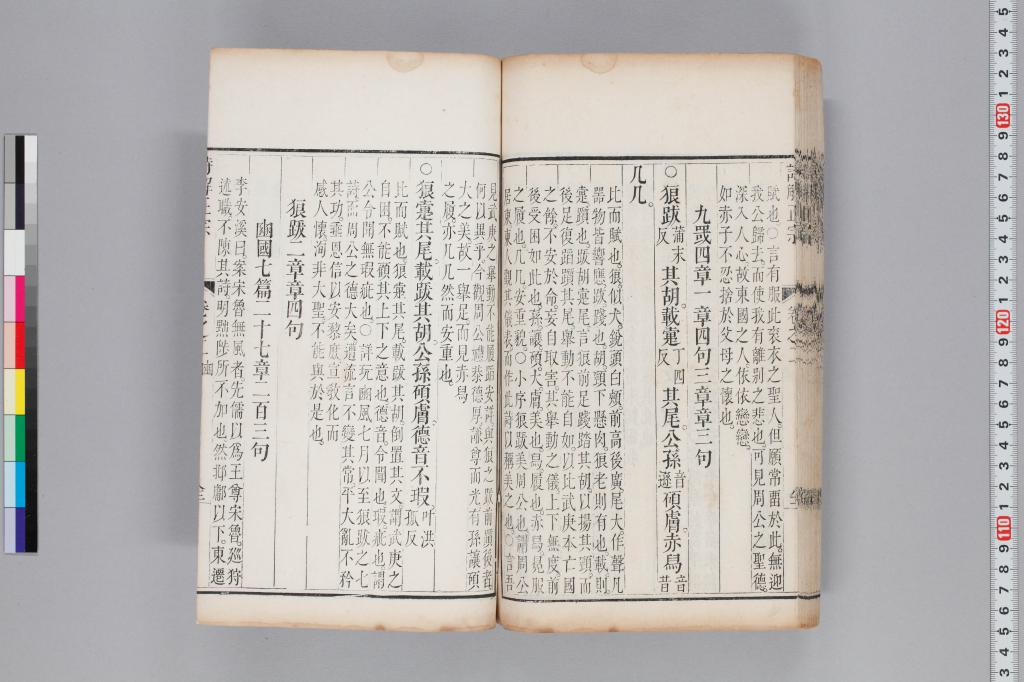 賦也○言有服此袞衣之聖人但願常畱於此無迎
我公歸去而使我有離別之悲也可見周公之聖德
深入人心故東國之人依依戀戀
如赤子不忍捨於父母之懷也
九罭四章一章四句三章章三句
○狼跋蒲末反其胡。載疐丁四反其尾公孫音遜碩膚赤舄音昔
几几。
比而賦也狼似犬銳頭白頰前高後廣尾大作聲凡
器物皆響應跋踐也胡頷下懸肉狼老則有也載則
疐躓也跋胡疐尾言狼前足踐踏其胡以揚其頭而
後足復躓躓其尾舉動不能自如以比武庚本亡國
之餘不安於命妄自取害其舉動之儀上下無度前
後受困如此也孫讓碩大膚美也舄履也赤舄冕服
之履也几几安重貌○小序狼跋美周公也謂周公
居東東人觀其儀表而作此詩以稱美之也○言吾
見武庚之舉動不能履蹈安詳與狼之跋前疐後者
何以異乎今觀周公禮恭德厚謙尊而光有孫讓碩
大之美故一舉足而見赤舄
之履亦几几然而安重也
○狼疐其尾載跋其胡公孫碩膚德音不瑕叶洪孤反
比而賦也狼疐其尾載跋其胡倒置其文謂武庚之
自困不能顧其上下之意也德音令聞也瑕疵也謂
公令聞無瑕疵也○詳玩豳風七月以至狼跋之七
詩而周公之德大矣遭流言不變其常平大亂不矜
其功秉恩信以安黎庶宣敎化而
感人懷海非大聖不能與於是也
狼跋二章章四句
豳國七篇二十七章二百三句
李安溪曰案宋魯無風者先儒以爲王尊宋魯巡狩
述職不陳其詩明黜陟所不加也然邶鄘以下東遷